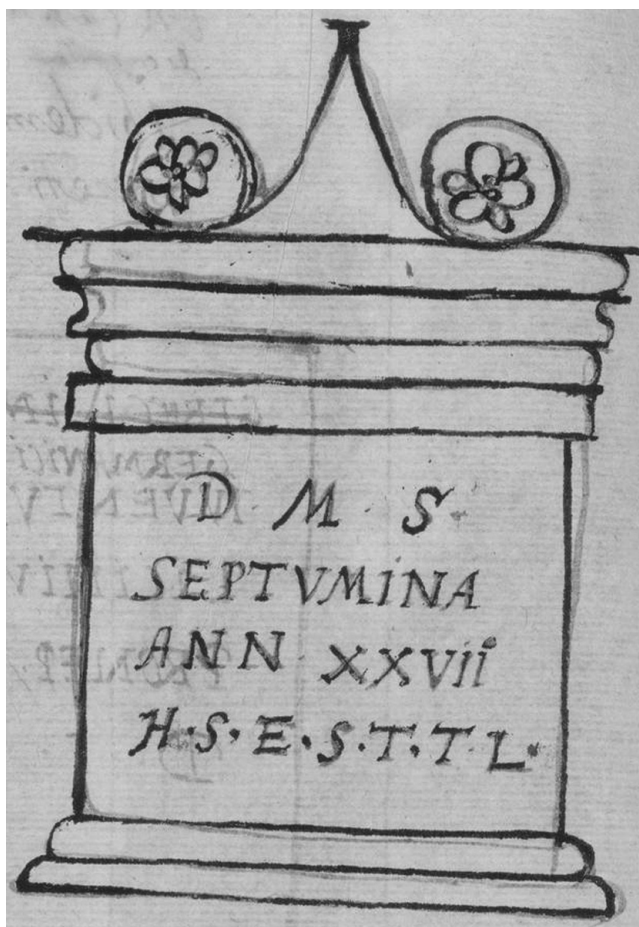 D · M · S ·
SEPTVMINA
ANN XXVII
H · S · E · S · T · T · L ·